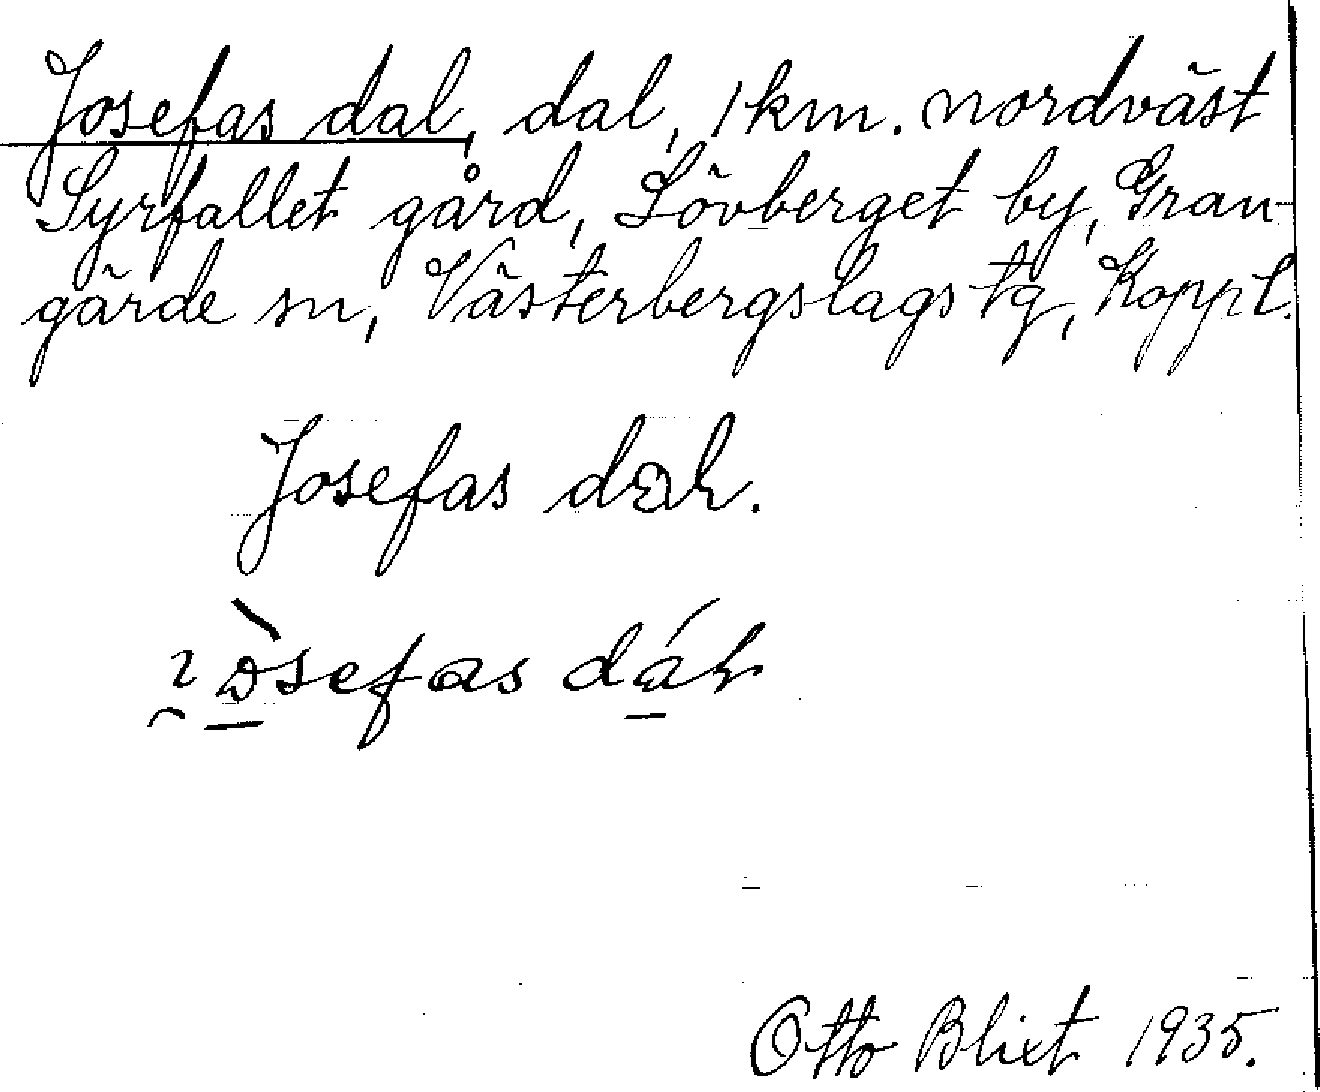 Josefas dal, dal, 1 km. nordväst
Syrfallet gård, Lövberget by, Gran-
gärde sn, Västerbergslags tg, Koppl.
Josefas
Otto Blixt 1935.